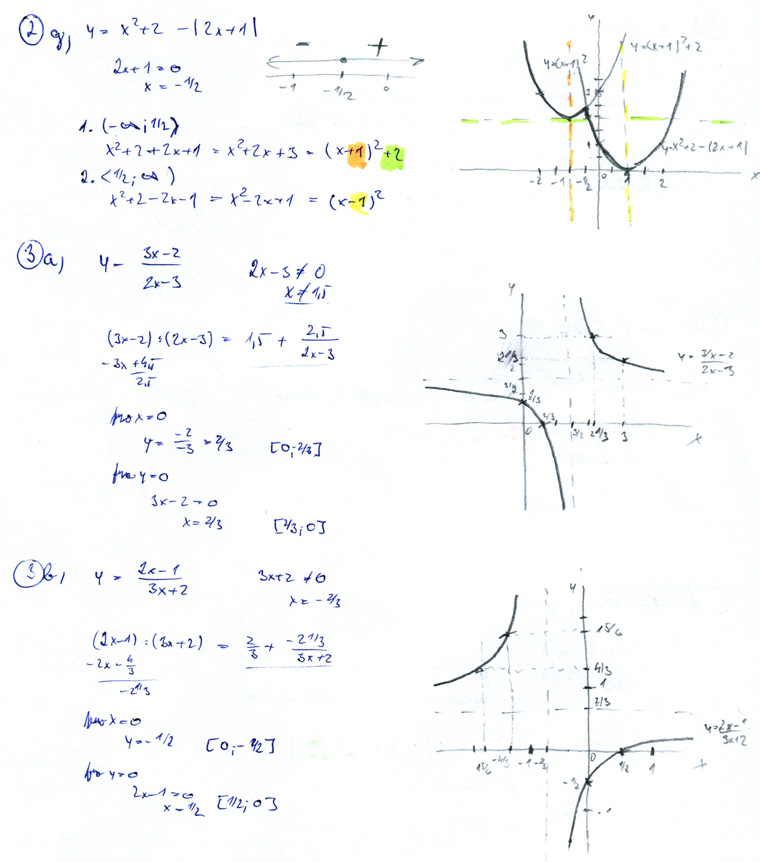 2 g, y = x² + 2 - |2x+1|
2x+1 = 0
x = -1/2
- +
-1 -1/2 0
1. (-∞; 1/2)
x²+2+2x+1 = x²+2x+3 = (x+1)²+2
2. <1/2; ∞)
x²+2-2x-1 = x²-2x+1 = (x-1)²
y
y=(x+1)²
y=(x+1)²+2
2
1
y=x²+2-(2x+1)
-2 -1 -1/2 0 1 2
x
3 a, y - 3x-2 / 2x-3
2x-3 ≠ 0
x ≠ 1,5
(3x-2):(2x-3) = 1,5 + 2,5 / 2x-3
-3x+4,5
2,5
pro x=0
y = -2 / -3 = 2/3 [0;-2/3]
pro y=0
3x-2=0
x = 2/3 [2/3; 0]
y
3
2 1/3
2
3/2
2/3
y = 3x-2 / 2x-3
0 2/3 3/2 2 1/3 3
x
3 b, y = 2x-1 / 3x+2
3x+2 ≠ 0
x = -2/3
(2x-1):(3x+2) = 2/3 + -2 1/3 / 3x+2
-2x - 4/3
-2 1/3
pro x=0
y = -1/2
pro y=0
2x-1=0
x = 1/2 [1/2; 0]
y
15/6
4/3
1
2/3
y = 2x-1 / 3x+2
-1 0 1/2 1
x